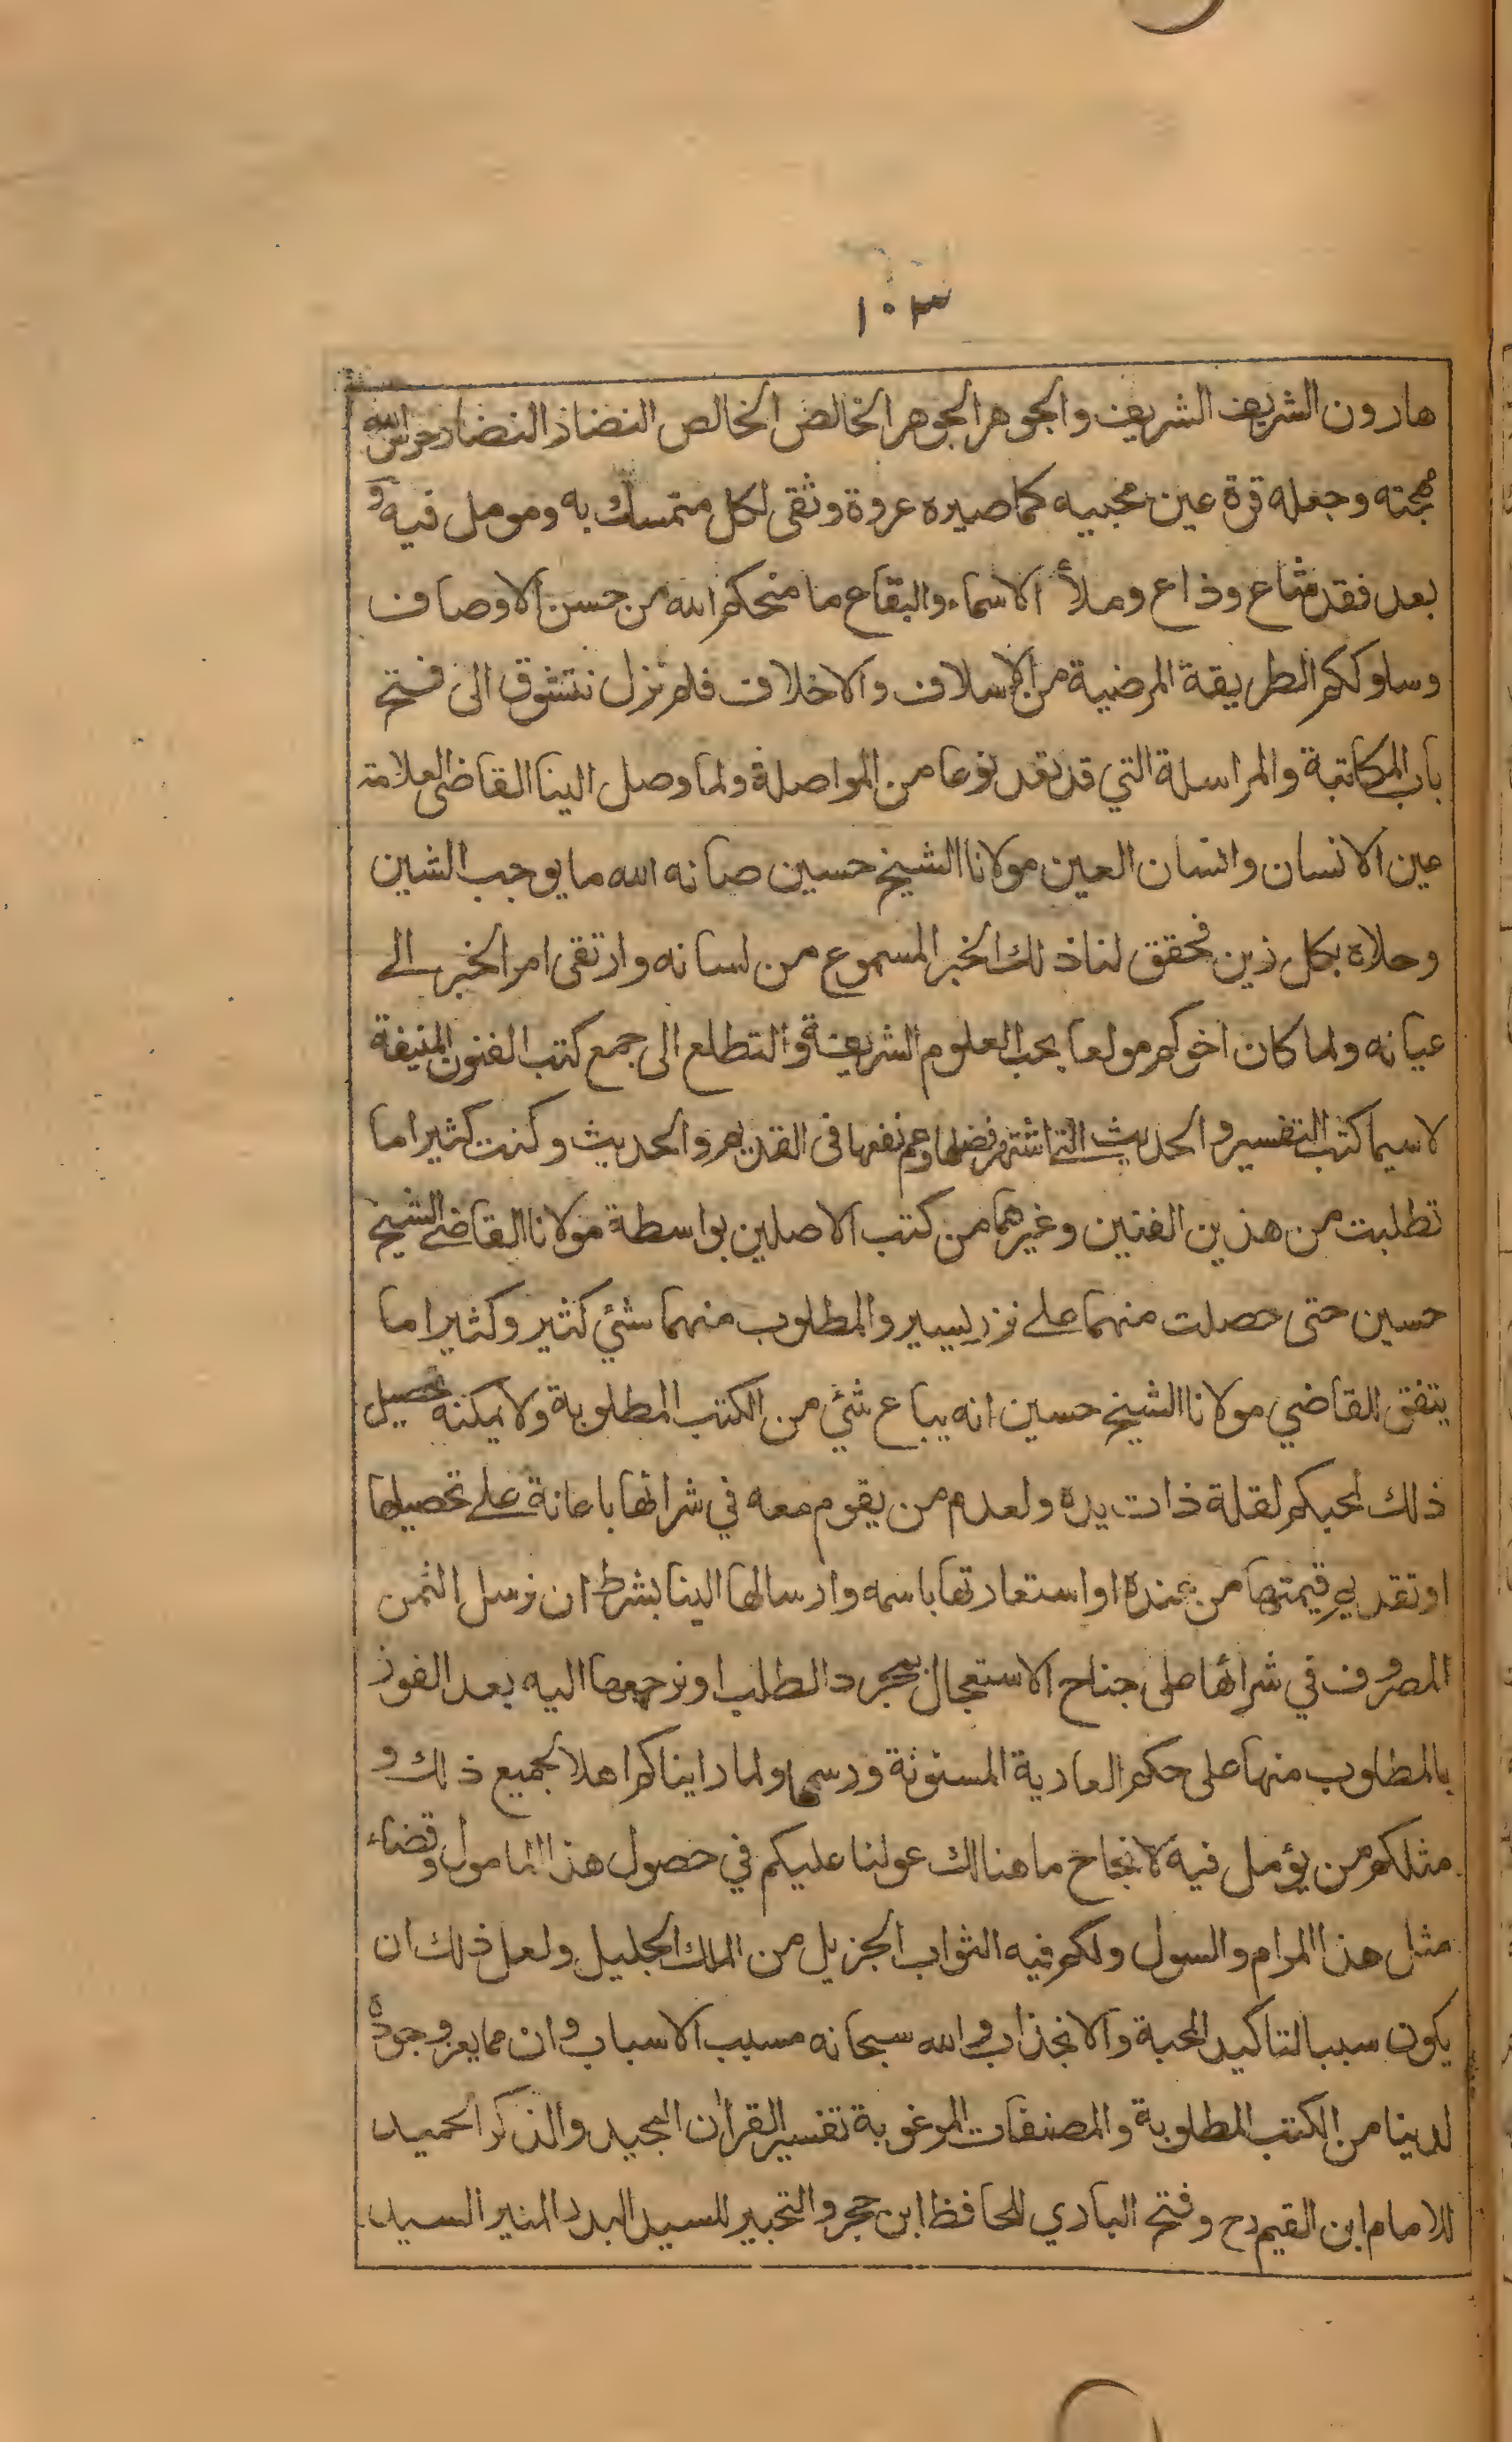 ١٠٣
هارون الشريف الشريف والجوهر الجوهر الخالص الخالص النضار النضار حرس الله
مهجته وجعله قرة عين محبيه كما صيره عروة وثقى لكل متمسك به ومومل فيه و
بعد فقد شاع وذاع وملأ الاسماء والبقاع ما منحكم الله من حسن الاوصاف
وسلوككم الطريقة المرضية من الاسلاف والاخلاف فلم نزل نتشوق الى فتح
باب المكاتبة والمراسلة التي قد تعد نوعا من المواصلة ولما وصل الينا القاضى العلامة
عين الانسان وانسان العين مولانا الشيخ حسين صانه الله ما يوجب الشين
وحلاه بكل زين فحقق لنا ذلك الخبر المسموع من لسانه وارتقى امر الخبر الے
عيانه ولما كان اخوكم مولعا بحب العلوم الشريفة والتطلع الى جمع كتب الفنون المنيفة
لاسيما كتب التفسير والحديث التے اشتهر فضلها وعم نفعها فى القديم والحديث وكنت كثيرا ما
تطلبت من هذين الفنين وغيرهما من كتب الاصلين بواسطة مولانا القاضے الشيخ
حسين حتى حصلت منهما علے نزر يسير والمطلوب منهما شئي كثير وكثيرا ما
يتفق القاضي مولانا الشيخ حسين انه يباع شئ من الكتب المطلوبة ولا يمكنه تحصيل
ذلك لمحبكم لقلة ذات يده ولعدم من يقوم معه في شرائها باعانة علے تحصيلها
او تقديم قيمتها من عنده او استعارتها باسمه وارسالها الينا بشرط ان نرسل الثمن
المصروف في شرائها على جناح الاستعجال بمجرد الطلب او نرجعها اليه بعد الفوز
بالمطلوب منها على حكم العارية المسنونة ورسمها ولما راينا كم اهلا لجميع ذلك و
مثلكم من يؤمل فيه لانجاح ما هنالك عولنا عليكم في حصول هذا المامول وقضاء
مثل هذا المرام والسول ولكم فيه الثواب الجزيل من الملك الجليل ولعل ذلك ان
يكون سببا لتاكيد المحبة والانجذاب والله سبحانه مسبب الاسباب وان مما يعز وجوده
لدينا من الكتب المطلوبة والمصنفات المرغوبة تفسير القران المجيد والذكر الحميد
للامام ابن القيم رح وفتح الباري للحافظ ابن حجر والتحبير للسيد البدر المنير السيد